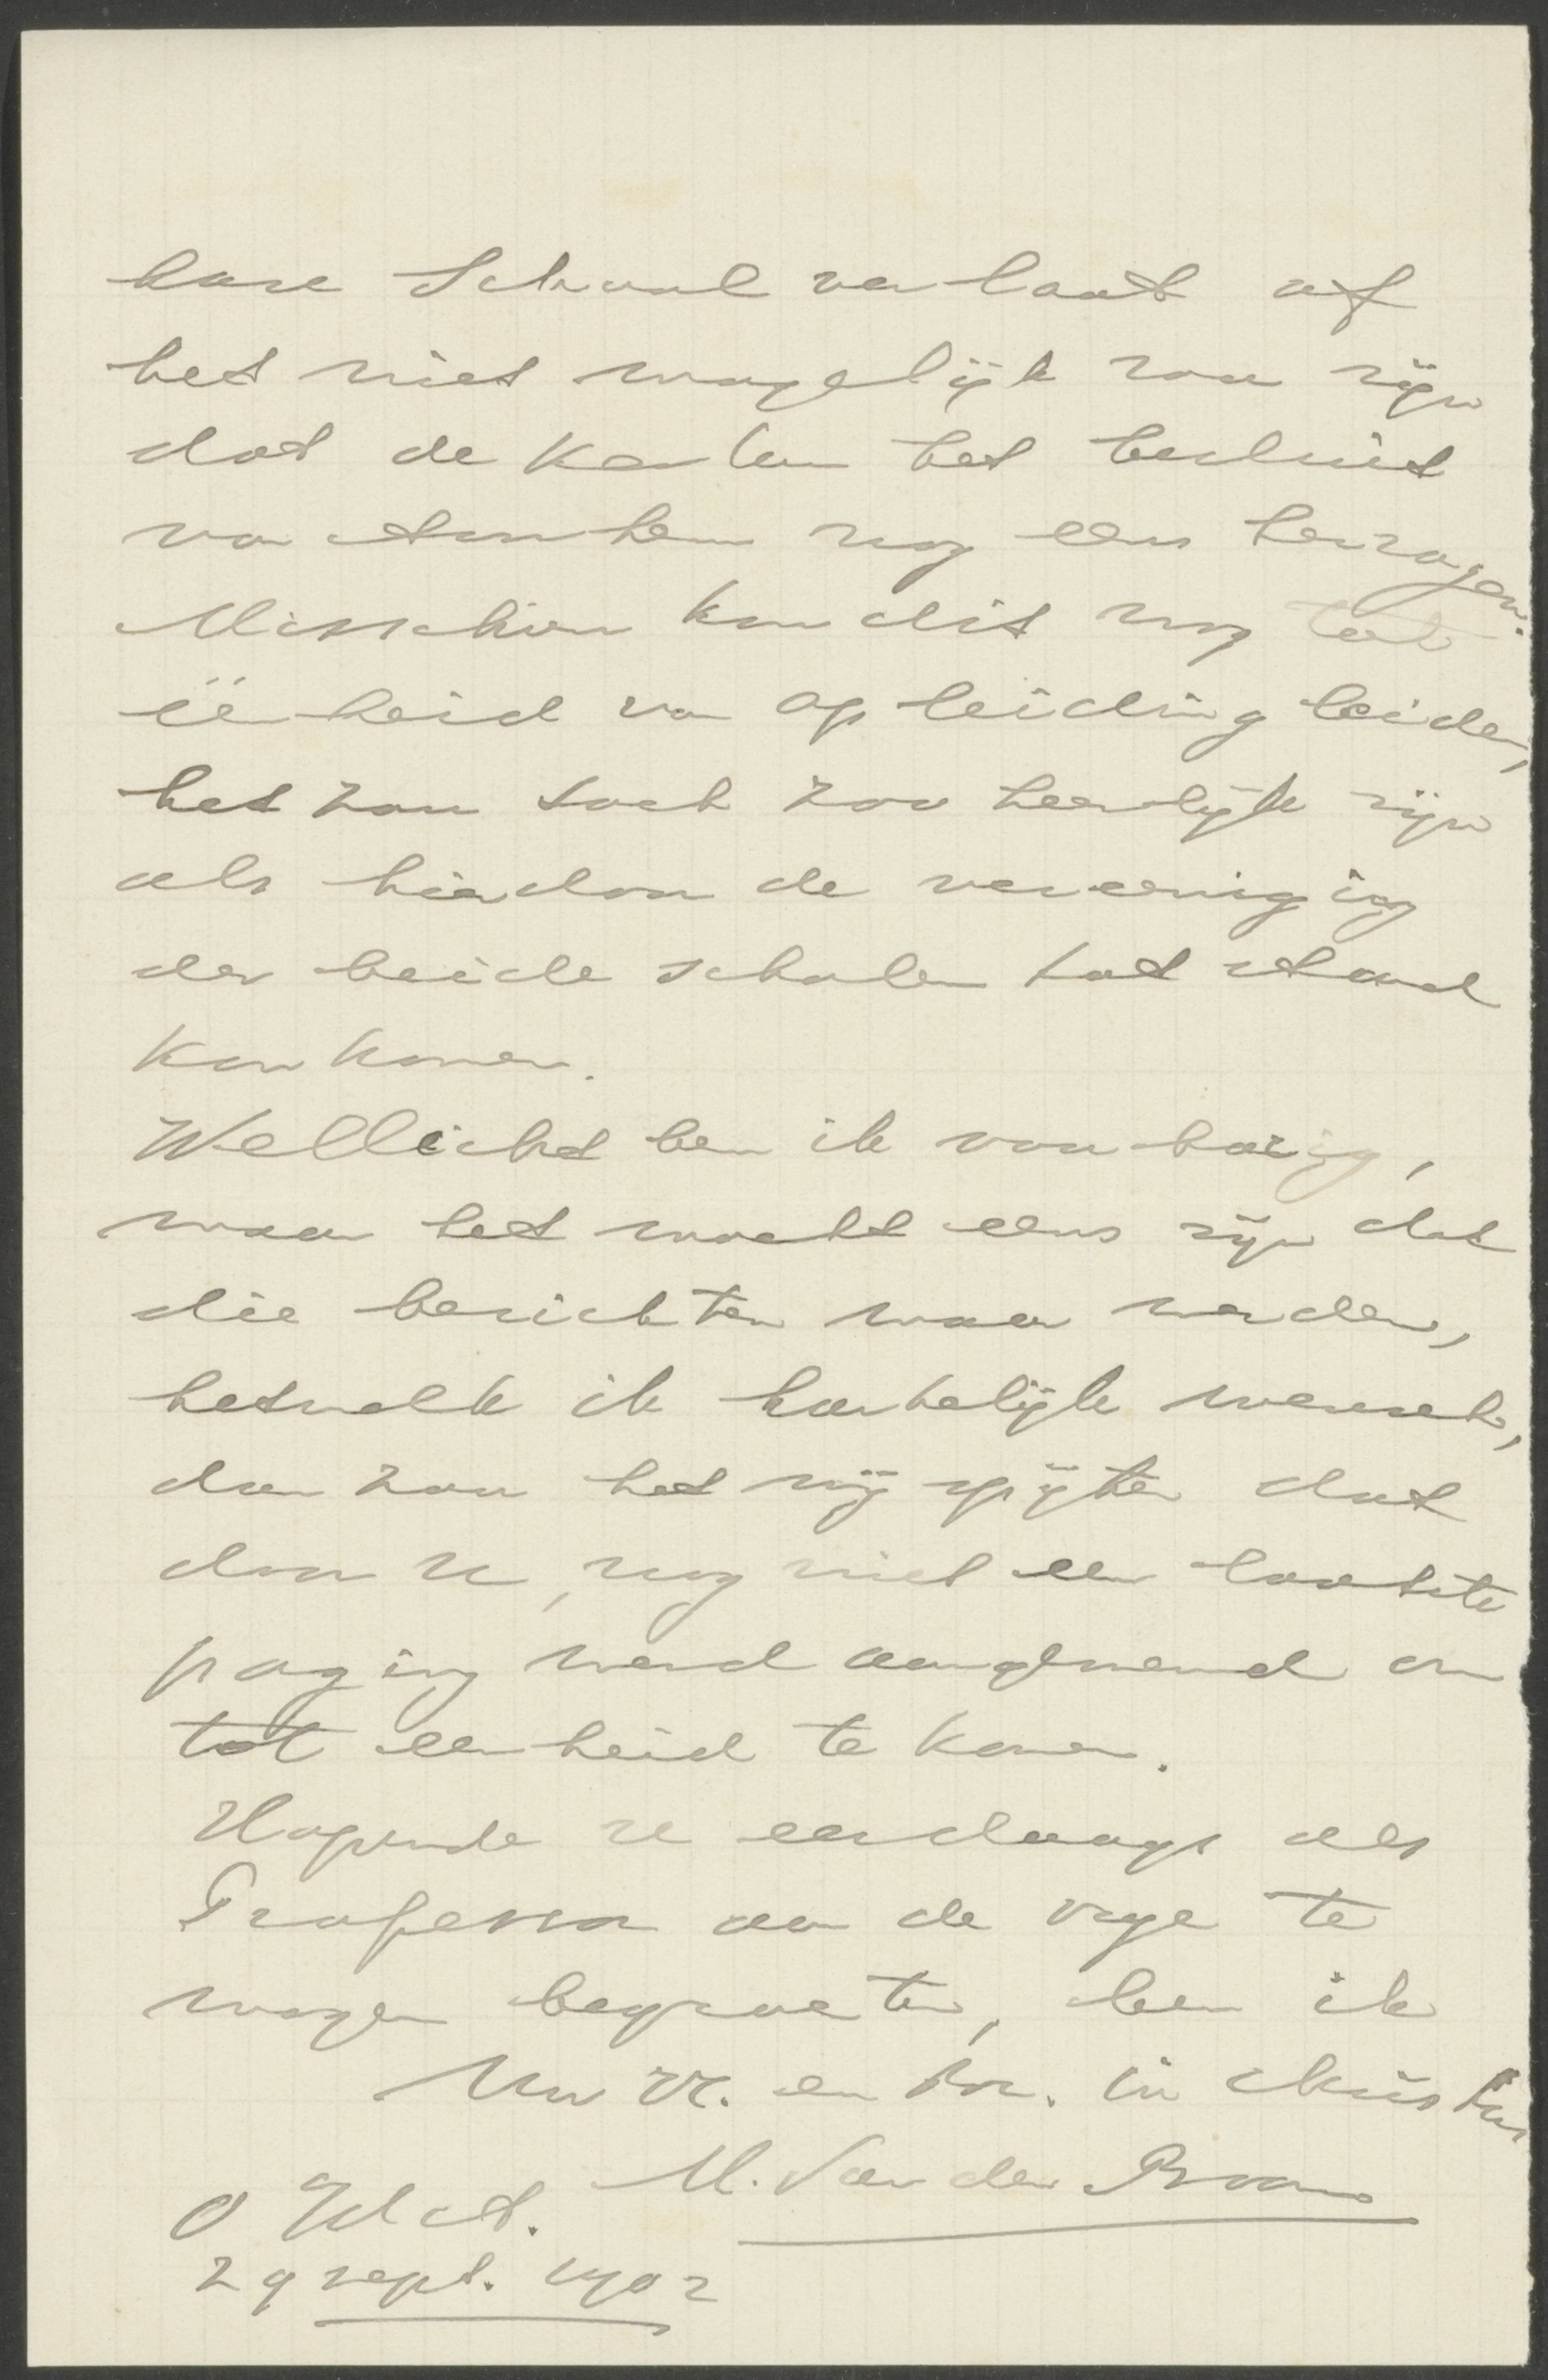 hare School verlaat of
het niet mogelijk zou zijn
dat de Kerken het besluit
van Arnhem nog eens herzagen.
Misschien kon dit nog tot
eenheid van opleiding leiden,
het zou toch zoo heerlijk zijn
als hierdoor de vereeniging
der beide scholen tot stand
kon komen.
Wellicht ben ik voorbarig,
maar het mocht eens zijn dat
die berichten waar werden,
hetwelk ik hartelijk wensch,
dan zou het mij spijten dat
door U, nog niet een laatste
poging werd aangewend om
tot eenheid te komen.
Hopende U eerdaags als
Professor aan de vrije te
mogen begroeten, ben ik
Uw vr. en br. in Christus
M. Van der Boom
O
29 sept. 1902